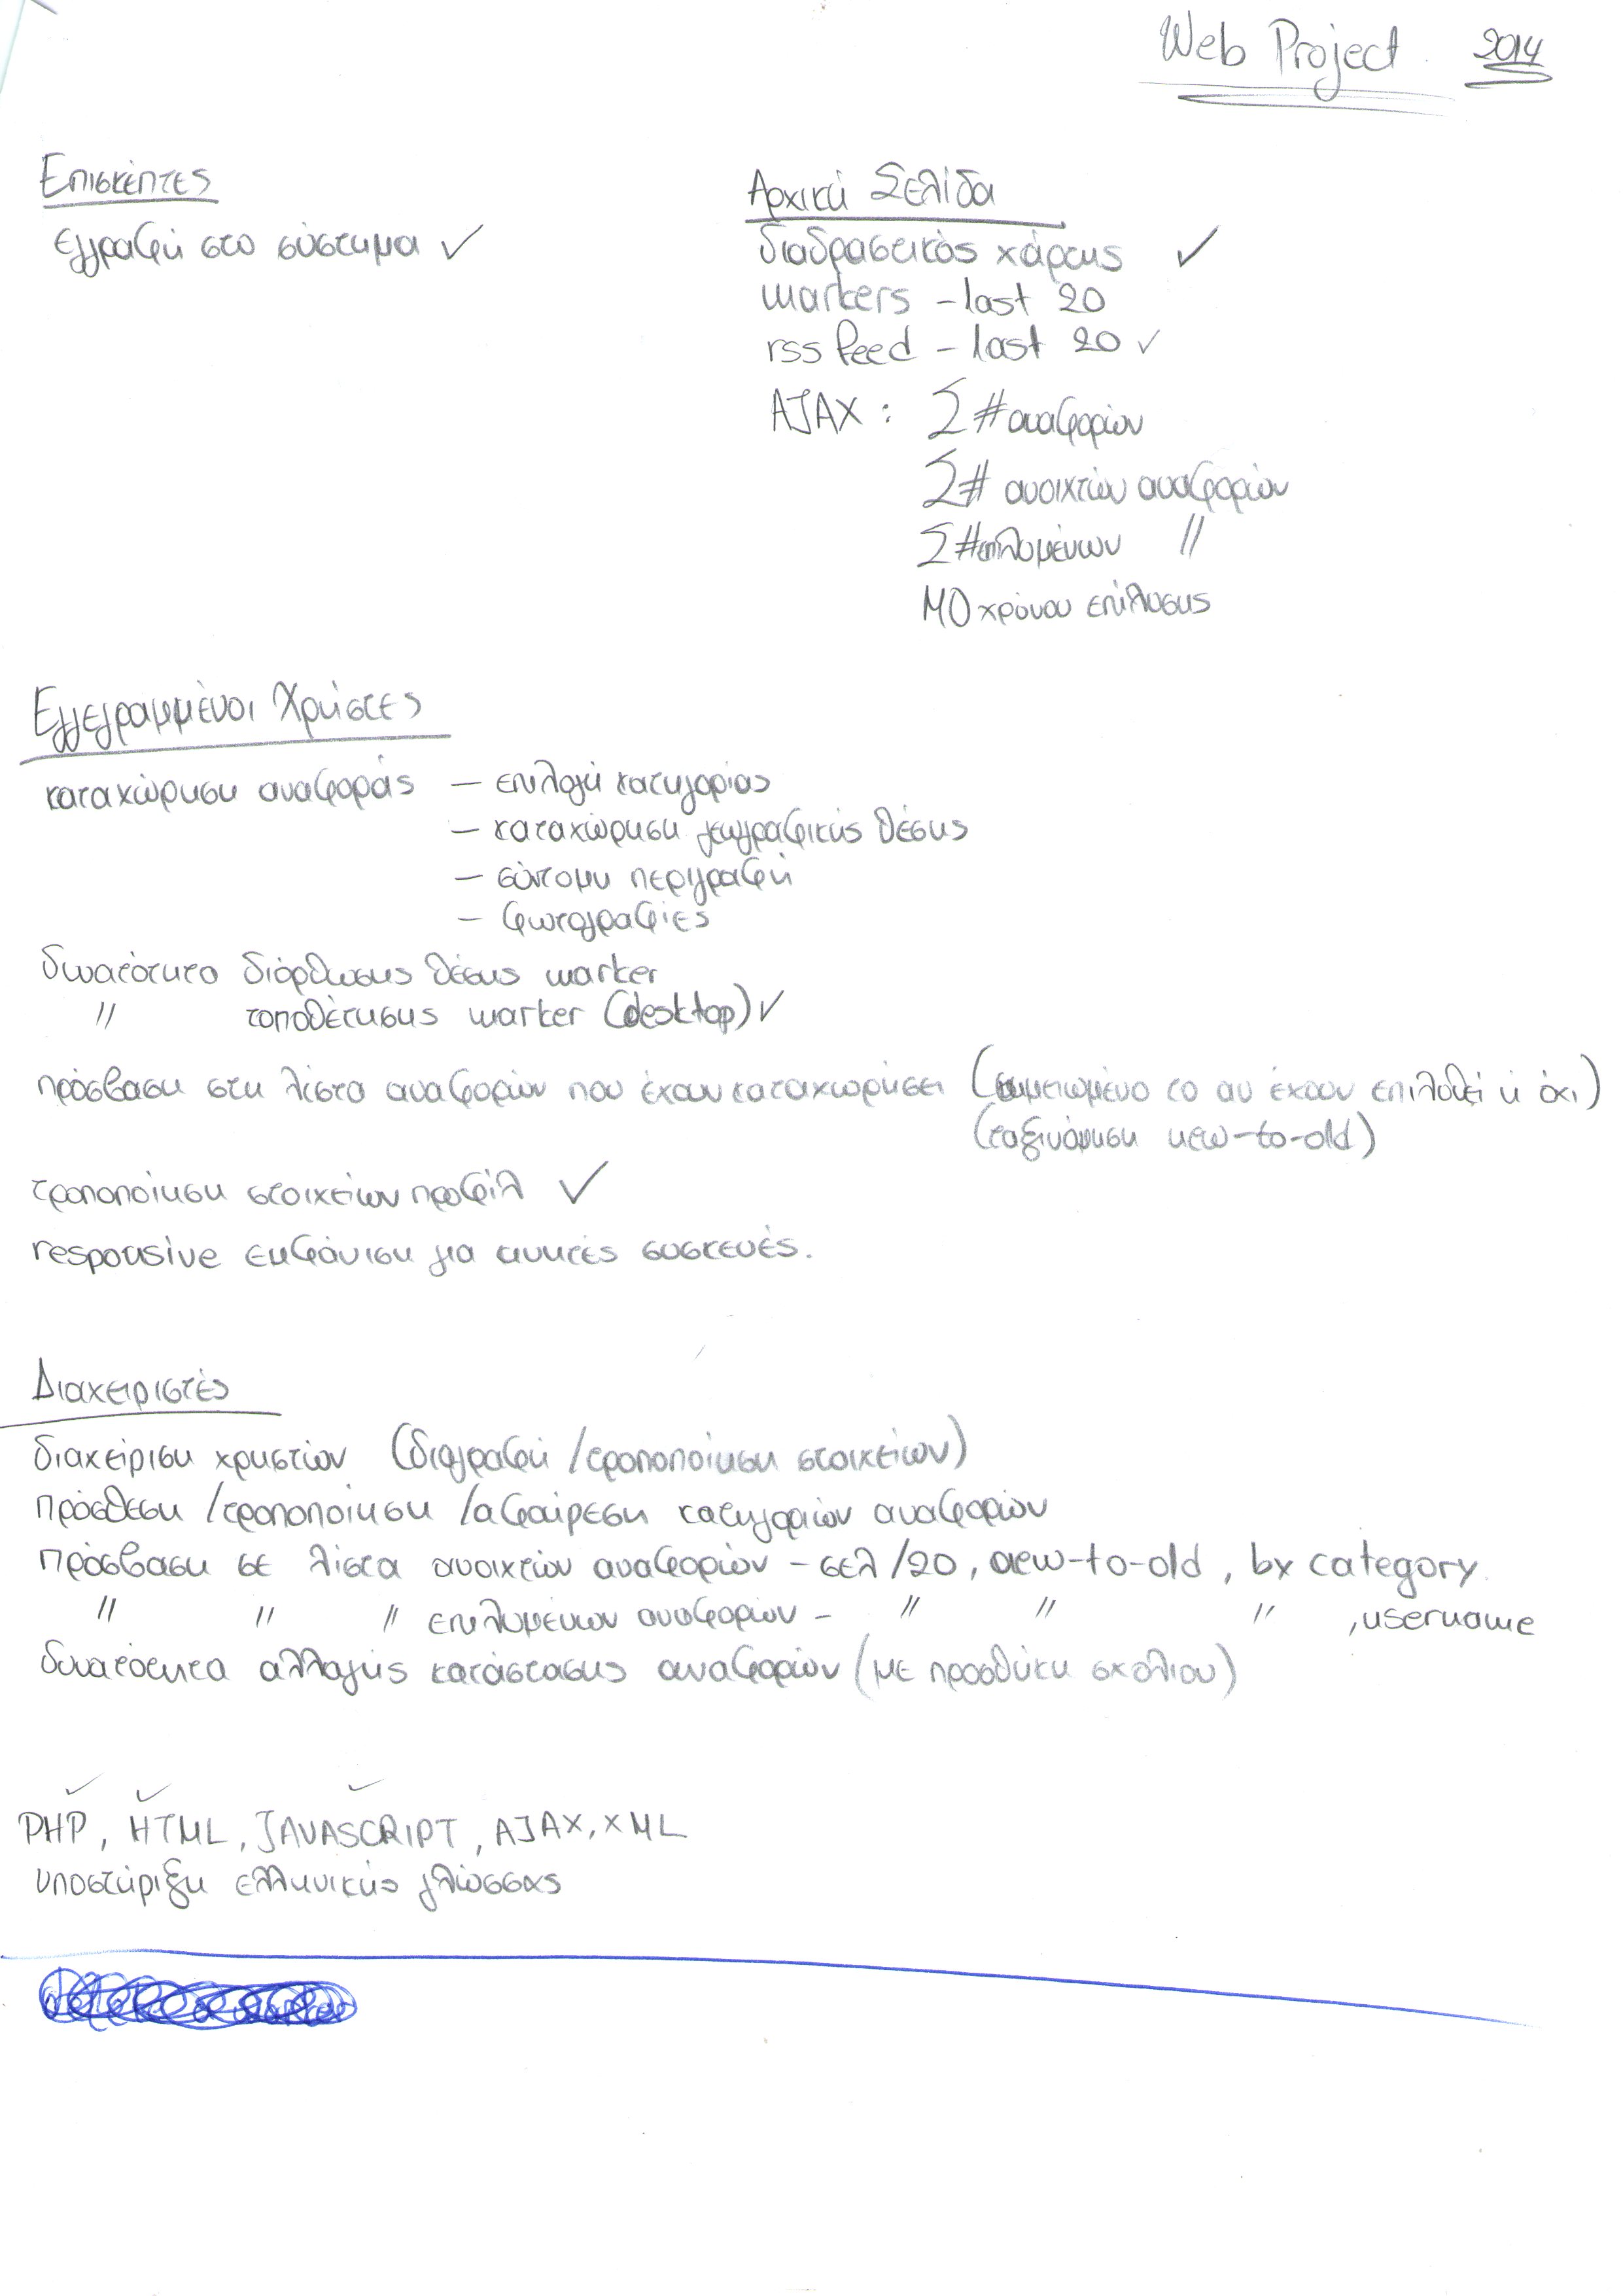 Web Project 2014
Επισκέπτες
εγγραφή στο σύστημα ✓
Αρχική Σελίδα
διαδραστικός χάρτης ✓
markers - last 20
rss feed - last 20 ✓
AJAX : Σ # αναφορών
Σ # ανοιχτών αναφορών
Σ # επιλυμένων //
ΜΟ χρόνου επίλυσης
Εγγεγραμμένοι Χρήστες
καταχώρηση αναφοράς - επιλογή κατηγορίας
- καταχώρηση γεωγραφικής θέσης
- σύντομη περιγραφή
- φωτογραφίες
δυνατότητα διόρθωσης θέσης marker
// τοποθέτησης marker (desktop) ✓
πρόσβαση στη λίστα αναφορών που έχουν καταχωρήσει (σημειωμένο το αν έχουν επιλυθεί ή όχι)
(ταξινόμηση new-to-old)
τροποποίηση στοιχείων προφίλ ✓
responsive εμφάνιση για κινητές συσκευές.
Διαχειριστές
διαχείριση χρηστών (διαγραφή / τροποποίηση στοιχείων)
πρόσθεση / τροποποίηση / αφαίρεση κατηγοριών αναφορών
πρόσβαση σε λίστα ανοιχτών αναφορών - σελ/20, new-to-old, by category
// // // επιλυμένων αναφορών - // // // , username
δυνατότητα αλλαγής κατάστασης αναφορών (με προσθήκη σχολίου)
PHP, HTML, JAVASCRIPT, AJAX, XML
υποστήριξη ελληνικής γλώσσας